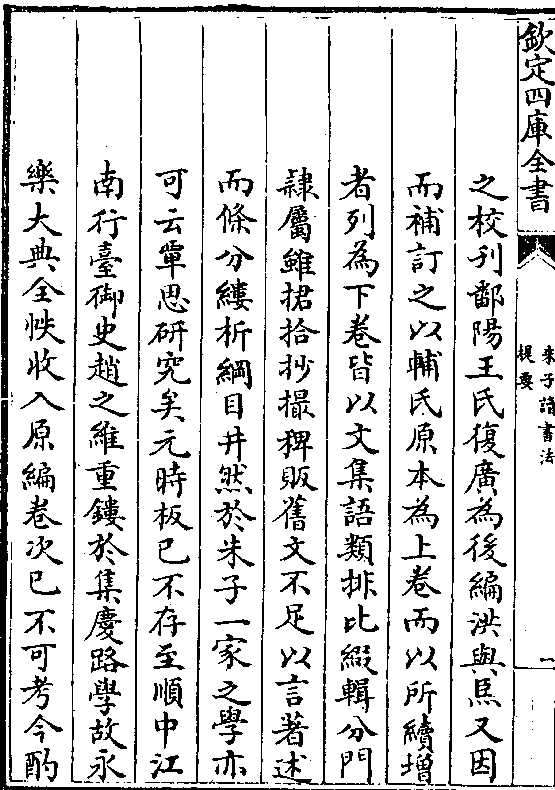 欽定四庫全書
朱子讀書法
提要
一
之校刊鄱陽王氏復廣為後編洪與㷼又因
而補訂之以輔氏原本為上卷而以所續增
者列為下卷皆以文集語類排比綴輯分門
隷屬雖捃拾抄撮稗販舊文不足以言著述
而條分縷析綱目井然於朱子一家之學亦
可云覃思研究矣元時板已不存至順中江
南行臺御史趙之維重鏤於集慶路學故永
樂大典全帙收入原編卷次已不可考今酌